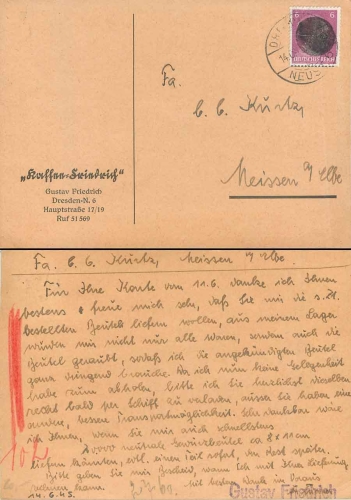 6 6
DEUTSCHES REICH
NEUS
Fa.
C. G. Kurtz,
Meissen a/Elbe
„Kaffee-Friedrich"
Gustav Friedrich
Dresden-N. 6
Hauptstraße 17/19
Ruf 51 569
Fa. C. G. Kurtz, Meissen a/Elbe.
Für Ihre Karte vom 11.6. danke ich Ihnen
bestens & freue mich sehr, daß Sie mir die s. Zt.
bestellten Beutel liefern wollen, aus meinem Lager
wurden mir nicht nur alle Waren, sondern auch die
Beutel geraubt, sodaß ich die angekündigten Beutel
ganz dringend brauche. Da ich nun keine Gelegenheit
habe zum abholen, bitte ich Sie herzlichst dieselben
recht bald per Schiff zu verladen, außer Sie haben eine
andere, bessere Transportmöglichkeit. Sehr dankbar wäre
ich Ihnen, wenn Sie mir auch schnellstens
neutrale Gewürzbeutel ca 8 x 11 cm
liefern könnten, evtl. einen Teil sofort, den Rest später.
Bitte geben Sie mir Bescheid, wann ich mit Ihrer Lieferung
rechnen kann. Mit bestem Dank im Voraus
14.6.45.
Gustav Friedrich